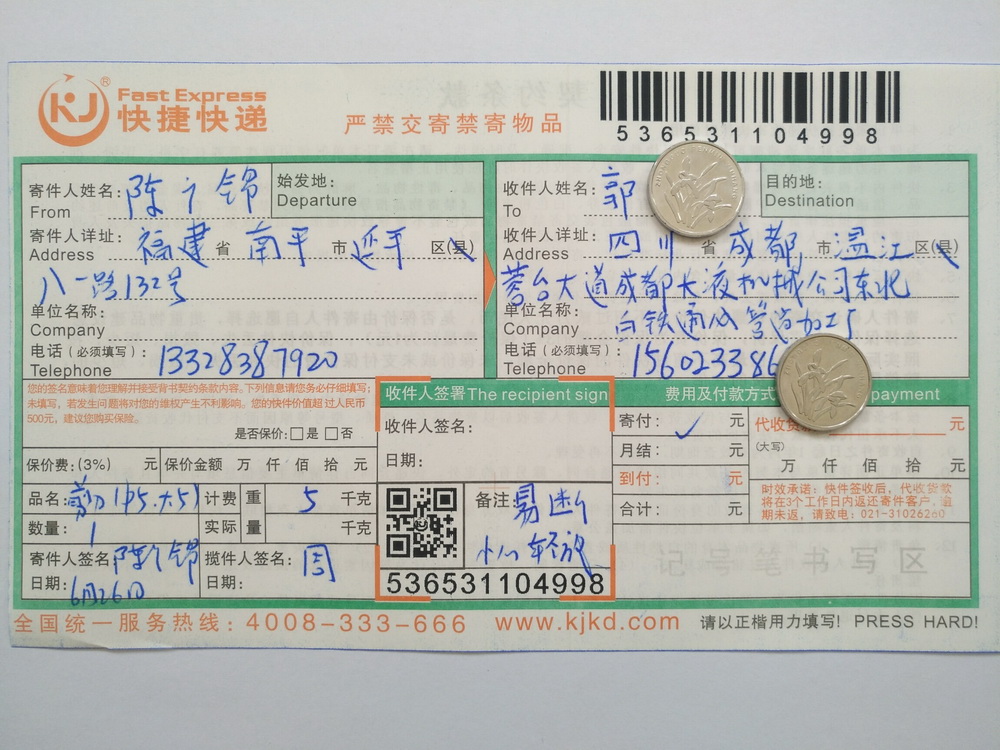 KJ®
Fast Express
快捷快递
严禁交寄禁寄物品
536531104998
寄件人姓名: 陈广锦
From
始发地:
Departure
寄件人详址: 福建 省 南平 市 延平 区(县)
Address
八一路132号
单位名称:
Company
电话(必须填写): 13328387920
Telephone
收件人姓名: 郭
To
目的地:
Destination
收件人详址: 四川 省 成都 市 温江 区(县)
Address
蓉台大道成都长液机械公司东北
单位名称: 白铁通风管道加工厂
Company
电话(必须填写): 156023386
Telephone
您的签名意味着您理解并接受背书契约条款内容。下列信息请您务必仔细填写;
未填写,若发生问题将对您的维权产生不利影响。您的快件价值超过人民币
500元,建议您购买保险。
是否保价:□是 □否
保价费:(3%) 元 保价金额 万 仟 佰 拾 元
品名: 剪刀(中5.大5) 计费重量 5 千克
数量: 1 实际重量 千克
寄件人签名: 陈广锦
日期: 6月26日
揽件人签名: 周
日期:
收件人签署 The recipient sign
收件人签名:
日期:
备注: 易断
小心轻放
536531104998
费用及付款方式 payment
寄付: ✓ 元
月结: 元
到付: 元
合计: 元
代收货 元
(大写)
万 仟 佰 拾 元
时效承诺:快件签收后,代收货款
将在3个工作日内返还寄件客户,逾
期未返,请致电:021-31026260
记号笔书写区
全国统一服务热线:4008-333-666 www.kjkd.com 请以正楷用力填写! PRESS HARD!